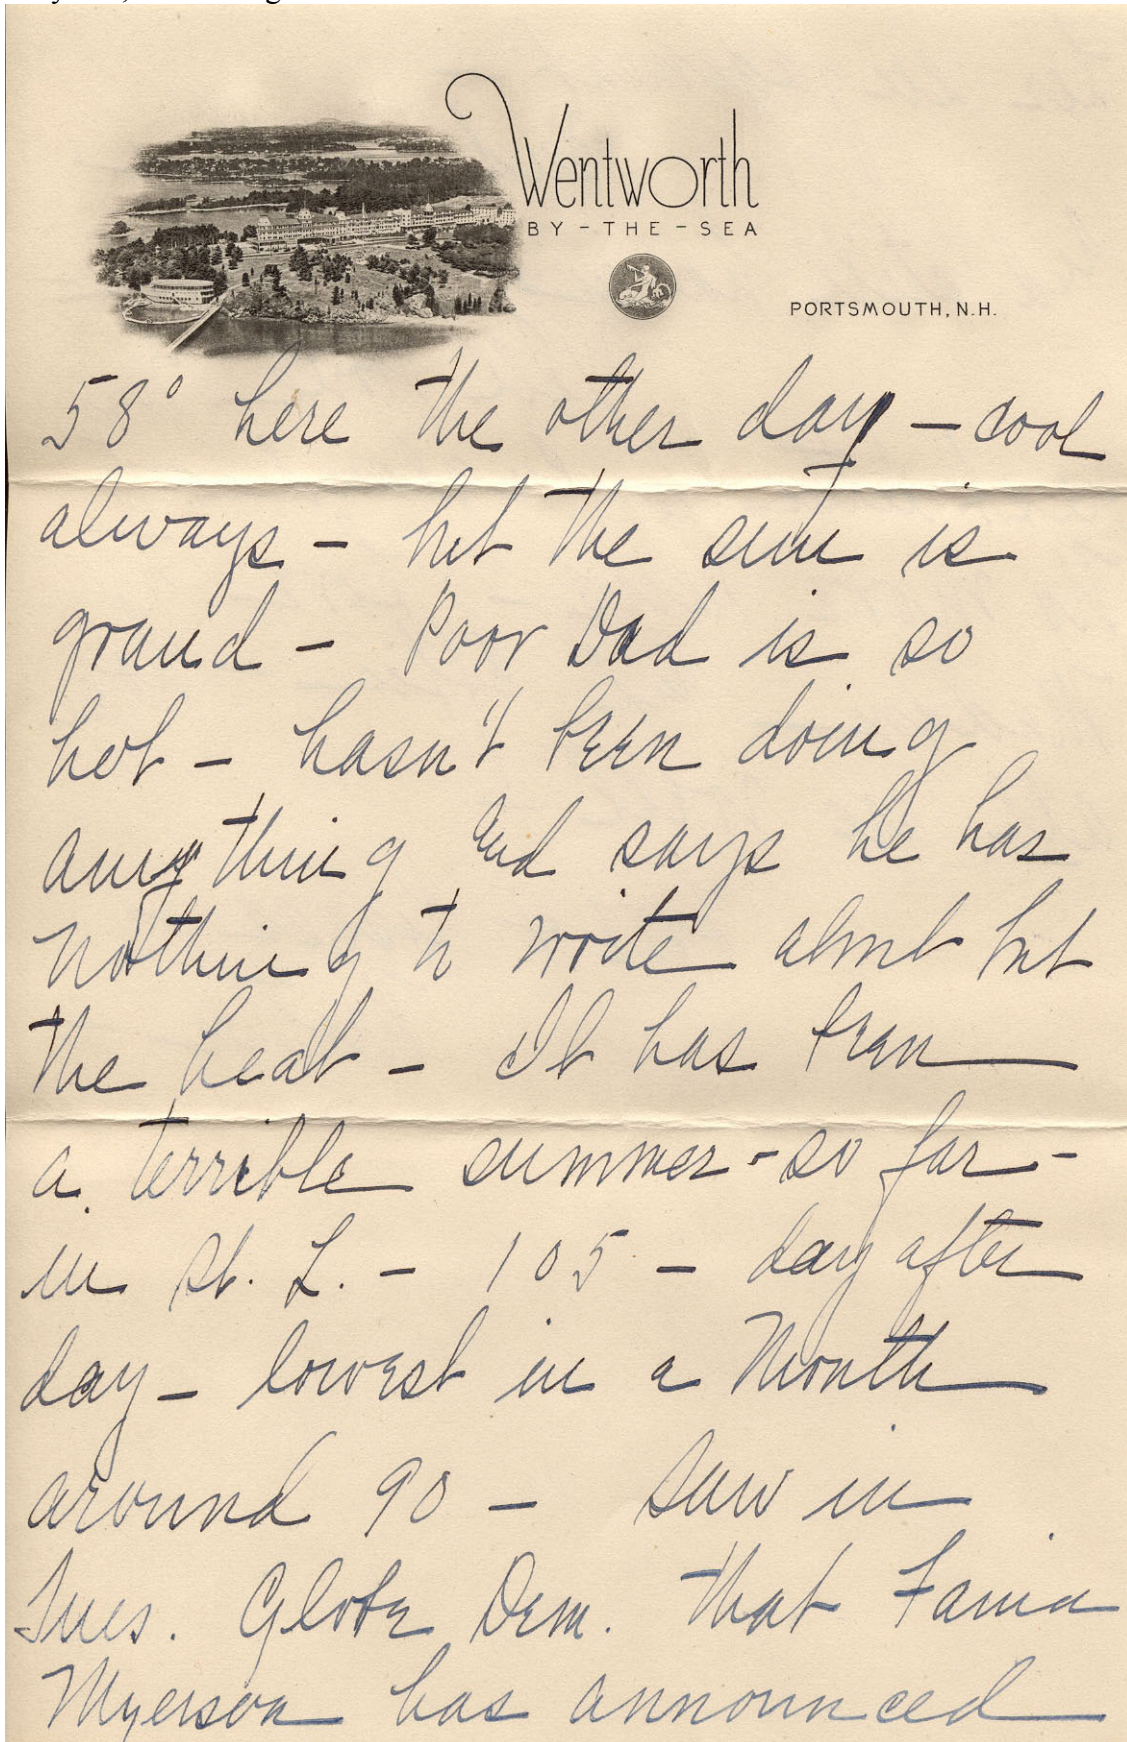 Wentworth
BY-THE-SEA
PORTSMOUTH, N.H.
58° here the other day – cool
always – but the sun is
grand – Poor Dad is so
hot – hasn't been doing
anything and says he has
nothing to write about but
the heat – It has been
a terrible summer - so far -
in St. L. – 105 – day after
day – lowest in a month
around 90 – Saw in
Tues. Globe Dem. that Fania
Myerson has announced